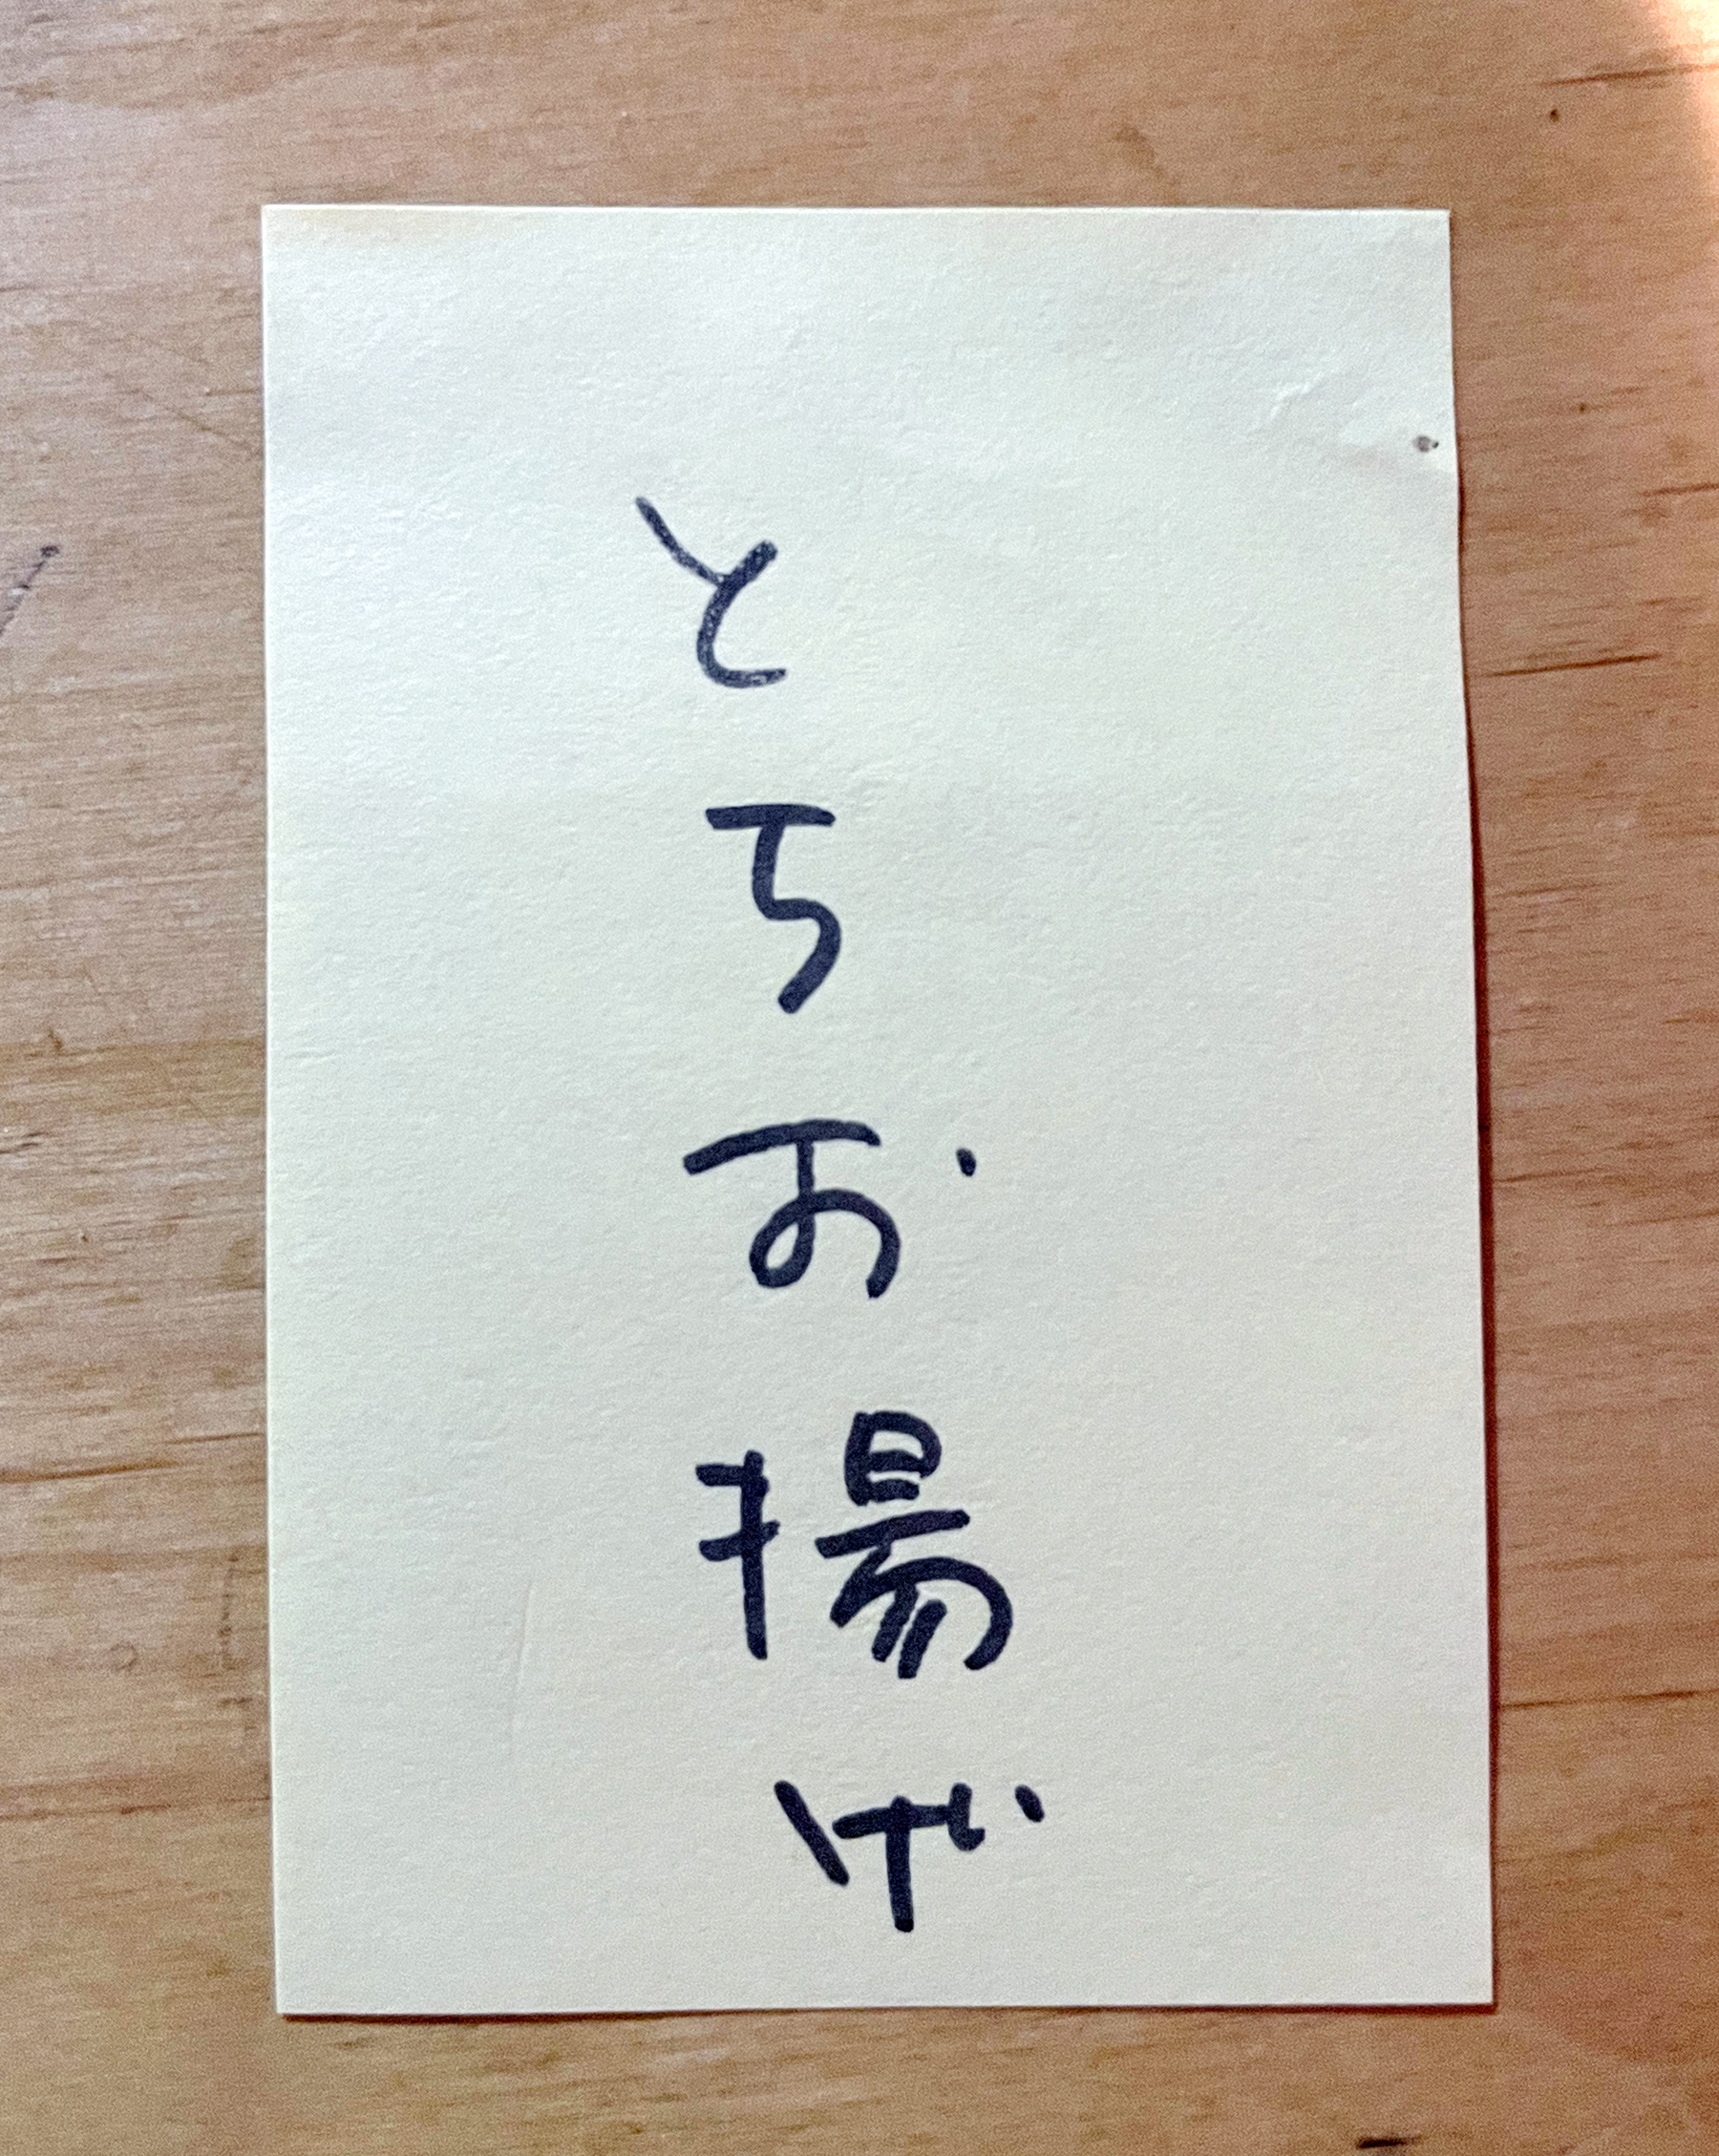 とちお揚げ